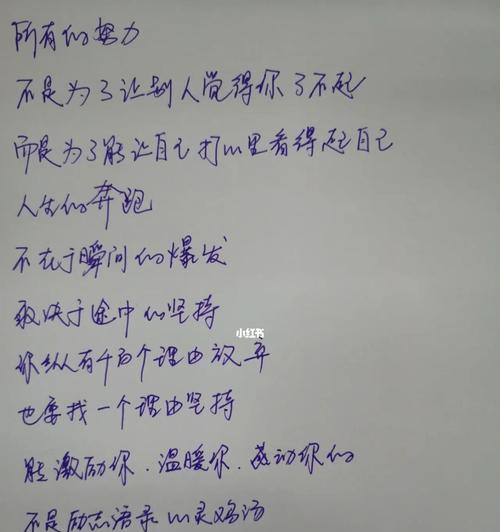 所有的努力
不是为了让别人觉得你了不起
而是为了能让自己打心里看得起自己
人生的奔跑
不在于瞬间的爆发
取决于途中的坚持
小红书
你纵有千百个理由放弃
也要找一个理由坚持
能激励你.温暖你.感动你的
不是励志语录心灵鸡汤